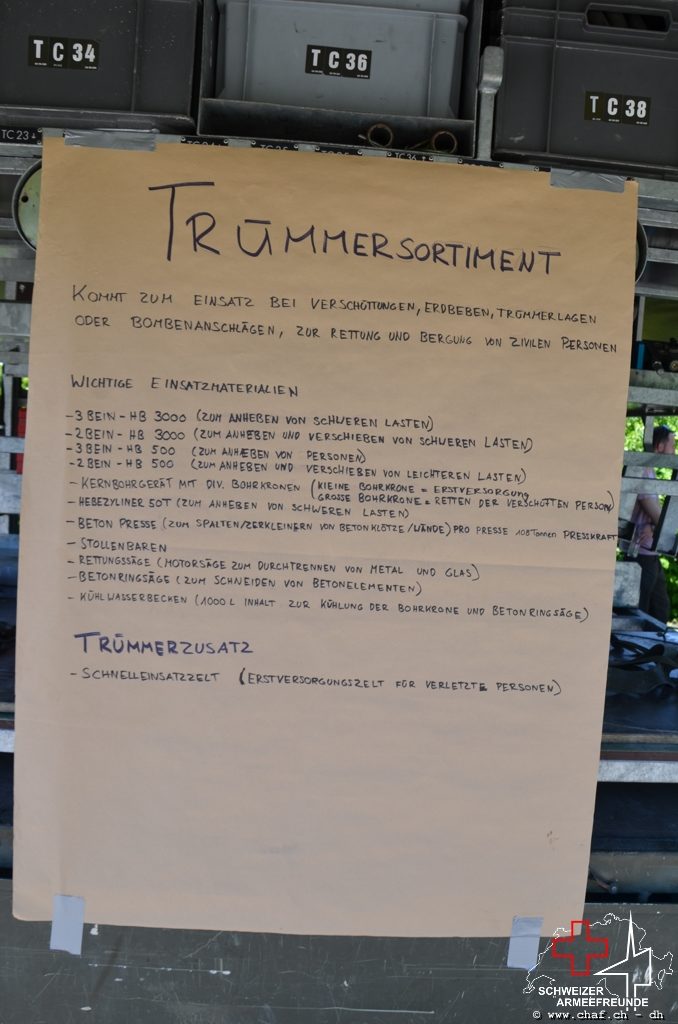 TC 34
TC 36
TC 38
TC 23
TRÜMMERSORTIMENT
KOMMT ZUM EINSATZ BEI VERSCHÜTTUNGEN, ERDBEBEN, TRÜMMERLAGEN
ODER BOMBENANSCHLÄGEN, ZUR RETTUNG UND BERGUNG VON ZIVILEN PERSONEN
WICHTIGE EINSATZMATERIALIEN
- 3 BEIN - HB 3000 (ZUM ANHEBEN VON SCHWEREN LASTEN)
- 2 BEIN - HB 3000 (ZUM ANHEBEN UND VERSCHIEBEN VON SCHWEREN LASTEN)
- 3 BEIN - HB 500 (ZUM ANHEBEN VON PERSONEN)
- 2 BEIN - HB 500 (ZUM ANHEBEN UND VERSCHIEBEN VON LEICHTEREN LASTEN)
- KERNBOHRGERÄT MIT DIV. BOHRKRONEN (KLEINE BOHRKRONE = ERSTVERSORGUNG
GROSSE BOHRKRONE = RETTEN DER VERSCHÜTTEN PERSON)
- HEBEZYLINER 50T (ZUM ANHEBEN VON SCHWEREN LASTEN)
- BETON PRESSE (ZUM SPALTEN/ZERKLEINERN VON BETONKLÖTZE/WÄNDE) PRO PRESSE 108 Tonnen PRESSKRAFT
- STOLLENBAREN
- RETTUNGSSÄGE (MOTORSÄGE ZUM DURCHTRENNEN VON METAL UND GLAS)
- BETONRINGSÄGE (ZUM SCHNEIDEN VON BETONELEMENTEN)
- KÜHLWASSERBECKEN (1000 L INHALT ZUR KÜHLUNG DER BOHRKRONE UND BETONRINGSÄGE)
TRÜMMERZUSATZ
- SCHNELLEINSATZZELT (ERSTVERSORGUNGSZELT FÜR VERLETZTE PERSONEN)
SCHWEIZER
ARMEEFREUNDE
© www.chaf.ch - dh